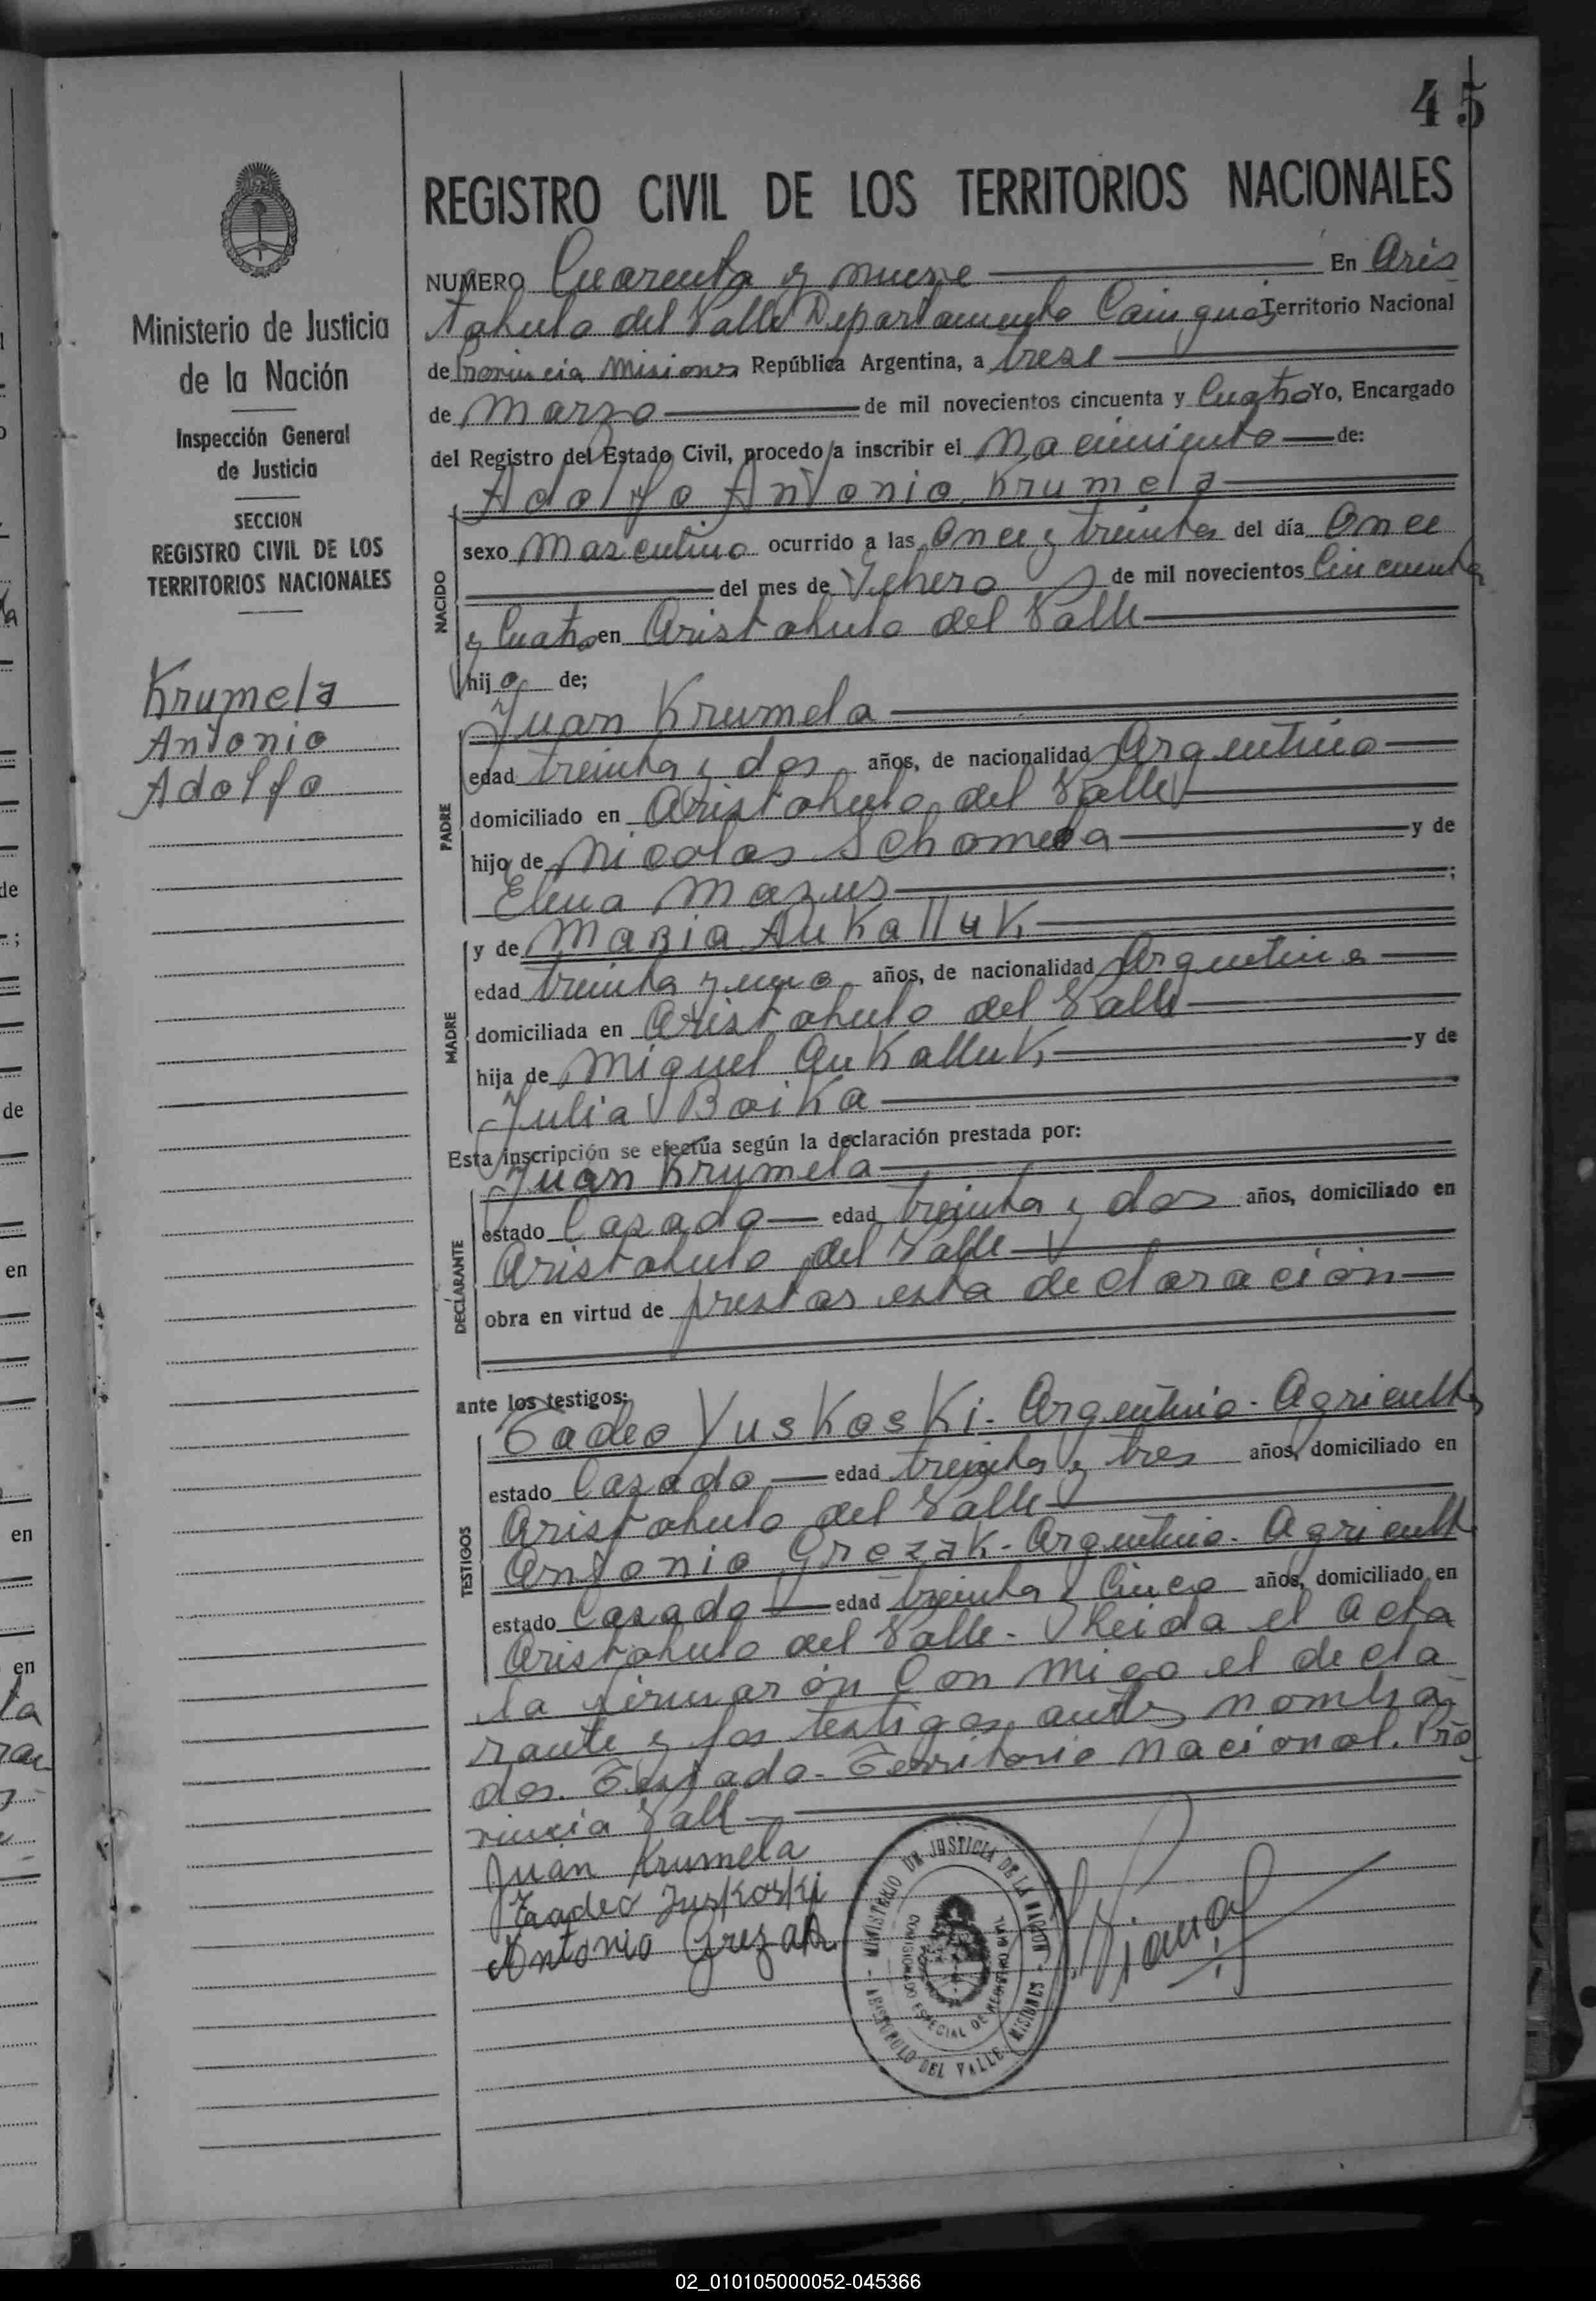 45
REGISTRO CIVIL DE LOS TERRITORIOS NACIONALES
Ministerio de Justicia
de la Nación
Inspección General
de Justicia
SECCION
REGISTRO CIVIL DE LOS
TERRITORIOS NACIONALES
Krumela
Antonio
Adolfo
NUMERO Cuarenta y nueve En Aris
tobulo del Valle Departamento Cainguás Territorio Nacional
de Provincia Misiones República Argentina, a trese
de Marzo de mil novecientos cincuenta y Cuatro Yo, Encargado
del Registro del Estado Civil, procedo a inscribir el Nacimiento de:
Adolfo Antonio Krumela
NACIDO
sexo Masculino ocurrido a las Once y treinta del día Once
del mes de Fehero de mil novecientos Cincuenta
y Cuatro en Aristobulo del Valle
hijo de;
Juan Krumela
PADRE
edad treinta y dos años, de nacionalidad Argentino
domiciliado en Aristobulo del Valle
hijo de Nicolas y de
Elena Mazur ;
y de Maria Aukalluk
MADRE
edad treinta y uno años, de nacionalidad Argentina
domiciliada en Aristobulo del Valle
hija de Miguel Aukalluk y de
Julia Boika
Esta inscripción se efectúa según la declaración prestada por:
Juan Krumela
DECLARANTE
estado Casado edad treinta y dos años, domiciliado en
Aristobulo del Valle
obra en virtud de prestar esta declaración
ante los testigos:
Tadeo Yuskoski - Argentino - Agricultor
TESTIGOS
estado Casado edad treinta y tres años, domiciliado en
Aristobulo del Valle
Antonio Grezak - Argentino - Agricult
estado Casado edad treinta y Cinco años, domiciliado en
Aristobulo del Valle - Leida el Acta
la firmarón Con Migo el decla
rante y los testigos antes nombra
dos. Testado - Territorio Nacional. Pro
vincia Vall
Juan Krumela
Tadeo Juskoski
Antonio Grezak
MINISTERIO DE JUSTICIA DE LA NACION
COMISIONADO ESPECIAL DE REGISTRO CIVIL
ARISTOBULO DEL VALLE MISIONES
02_010105000052-045366